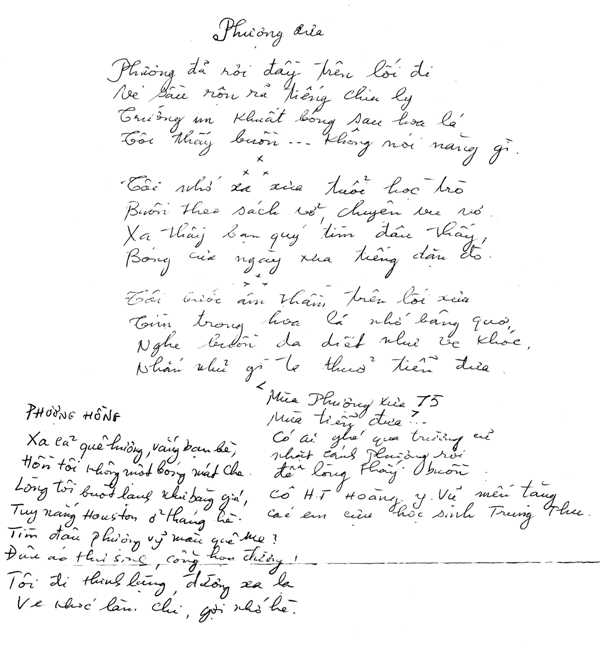 Phượng xưa
Phượng đã rơi đầy trên lối đi
Ve sầu rôn rả tiếng chia ly
Trường im khuất bóng sau hoa lá
Tôi thấy buồn... không nói năng gì.
Tôi nhớ xa xưa tuổi học trò
Buồn theo sách vở, chuyện vu vơ.
Xa thầy bạn quý tìm đâu thấy,
Bóng cũ ngày xưa tiếng dặn dò.
Tôi bước âm thầm trên lối xưa
Tìm trong hoa lá nhớ bâng quơ,
Nghe buồn da diết như ve khóc,
Nhắn nhủ gì ... thuở tiễn đưa.
Mùa Phượng xưa 75
Mùa tiễn đưa?...
Có ai ghé qua trường cũ
nhặt cánh Phượng rơi
để lòng thấy buồn.
Cô H.T Hoàng Y. Vũ mến tặng
các em cựu học sinh Trung Thu.
PHƯỢNG HỒNG
Xa cả quê hương, vắng bạn bè,
Hồn tôi không một bóng mát che.
Lòng tôi buốt lạnh khi băng giá,
Tuy nắng Houston ở tháng hè.
Tìm đâu phượng vỹ màu quê mẹ?
Đâu áo thư sinh, cổng học đường!
Tôi đi thinh lặng, đường xa lạ
Ve nhọc lòng chi, gợi nhớ hè.